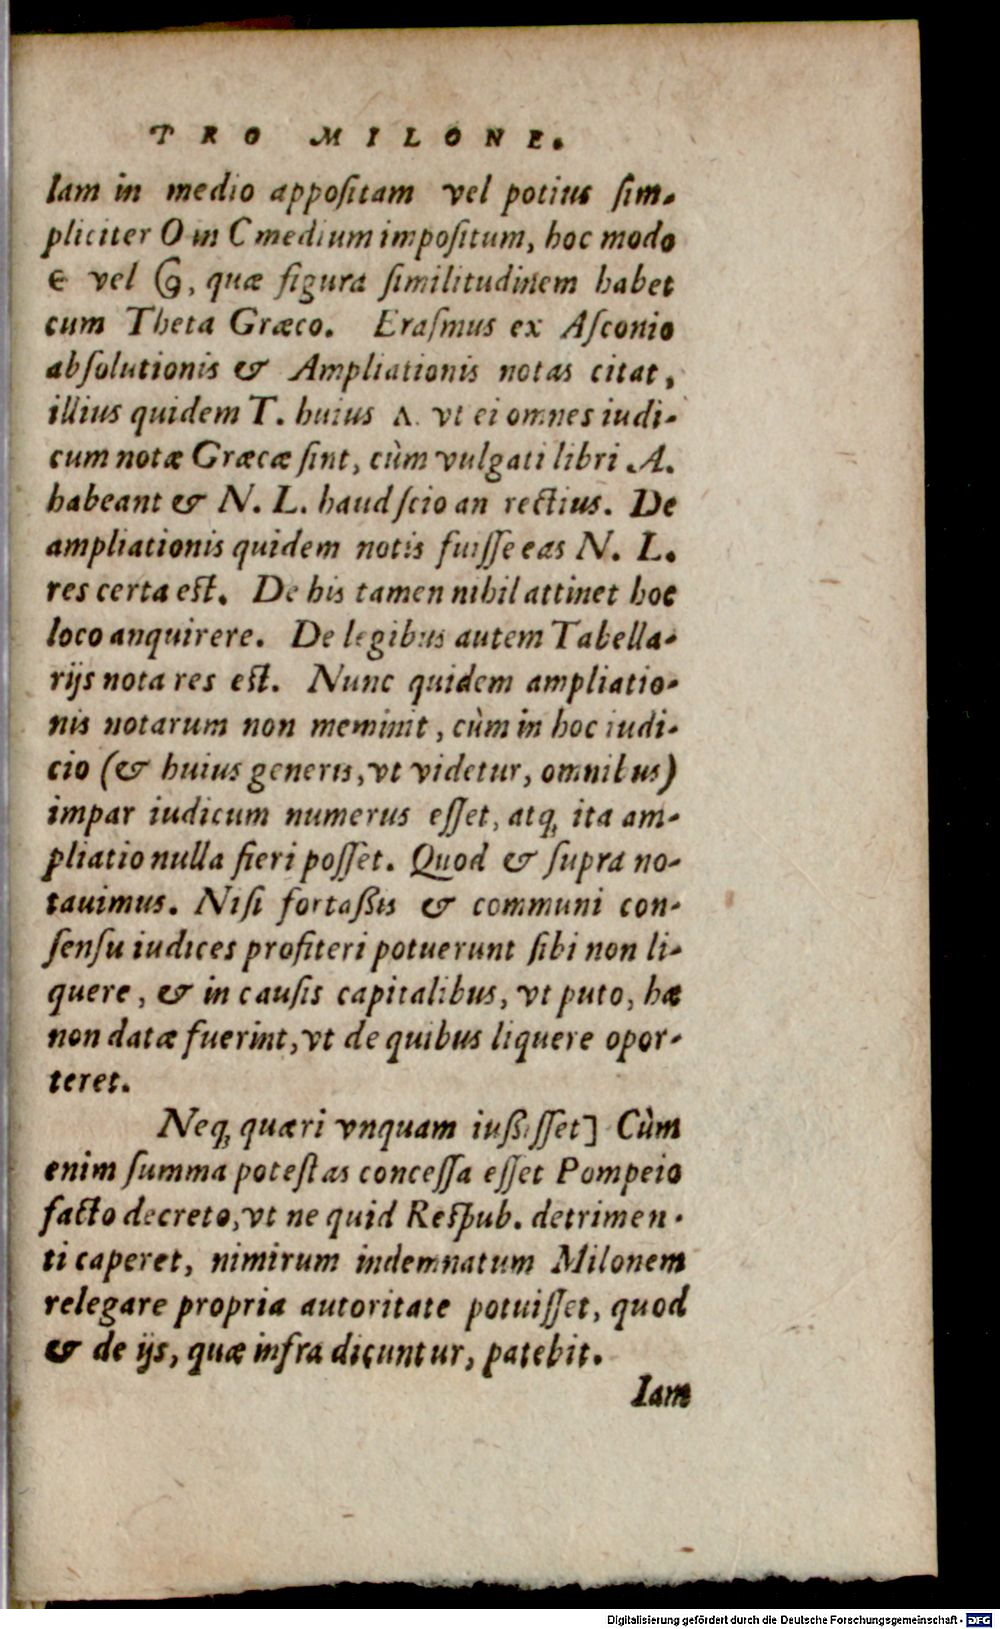 PRO MILONE.
lam in medio appositam vel potius sim-
pliciter O in C medium impositum, hoc modo
є vel , quæ figura similitudinem habet
cum Theta Græco. Erasmus ex Asconio
absolutionis & Ampliationis notas citat,
illius quidem T. huius Λ. vt ei omnes iudi-
cum notæ Græcæ sint, cùm vulgati libri A.
habeant & N. L. haud scio an rectius. De
ampliationis quidem notis fuisse eas N. L.
res certa est. De his tamen nihil attinet hoc
loco anquirere. De legibus autem Tabella-
rijs nota res est. Nunc quidem ampliatio-
nis notarum non meminit, cùm in hoc iudi-
cio (& huius generis, vt videtur, omnibus)
impar iudicum numerus esset, atq; ita am-
pliatio nulla fieri posset. Quod & supra no-
tauimus. Nisi fortaßis & communi con-
sensu iudices profiteri potuerunt sibi non li-
quere, & in causis capitalibus, vt puto, hæ
non datæ fuerint, vt de quibus liquere opor-
teret.
Neq; quæri vnquam iußisset] Cùm
enim summa potestas concessa esset Pompeio
facto decreto, vt ne quid Respub. detrimen-
ti caperet, nimirum indemnatum Milonem
relegare propria autoritate potuisset, quod
& de ijs, quæ infra dicuntur, patebit.
Iam
Digitalisierung gefördert durch die Deutsche Forschungsgemeinschaft - DFG